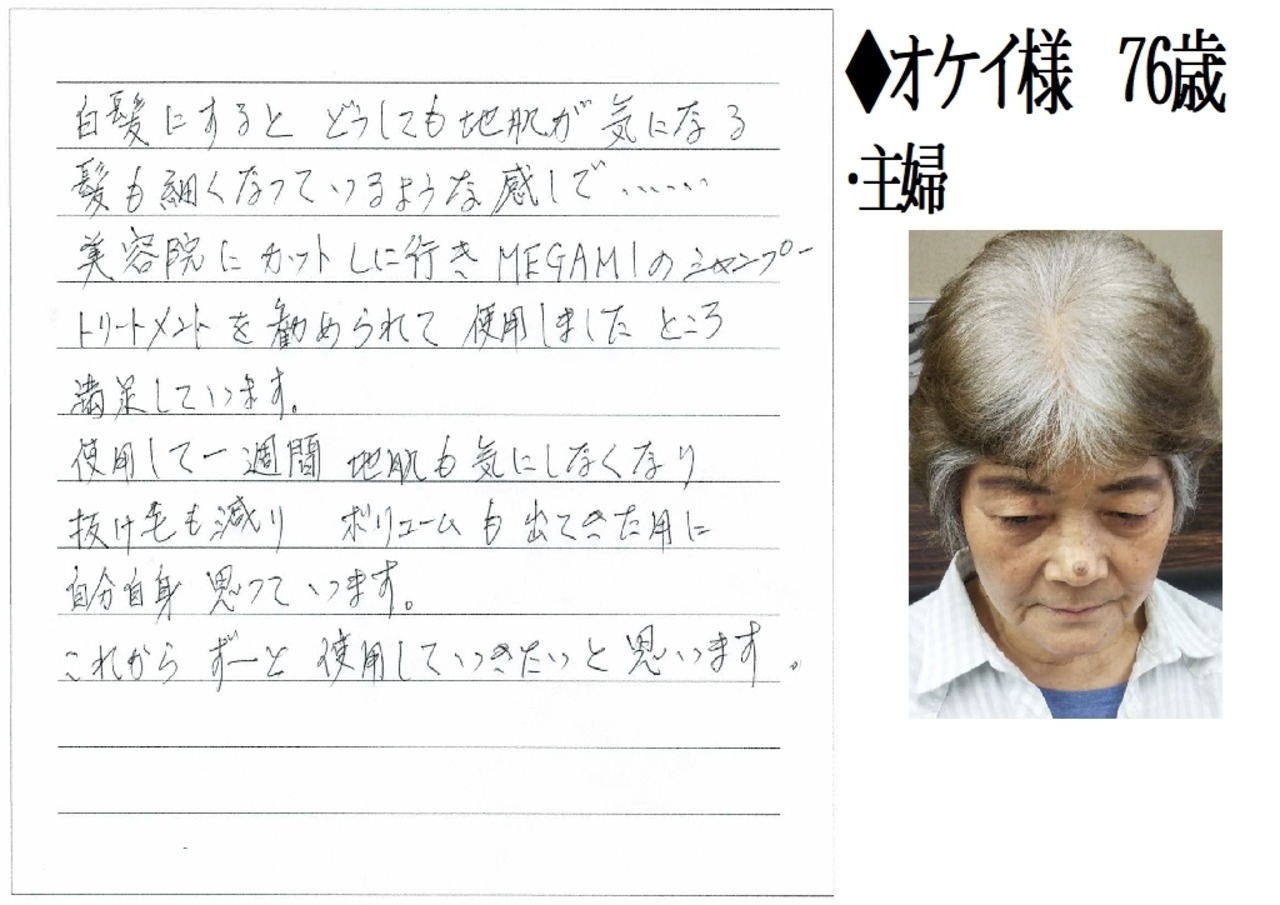 白髪にすると どうしても地肌が気になる
髪も細くなっているような感じで……
美容院にカットしに行きMEGAMIのシャンプー
トリートメントを勧められて使用しましたところ
満足しています。
使用して一週間 地肌も気にしなくなり
抜け毛も減り ボリュームも出てきた用に
自分自身 思っています。
これから ずーと 使用していきたいと思います。
◆オケイ様 76歳
・主婦